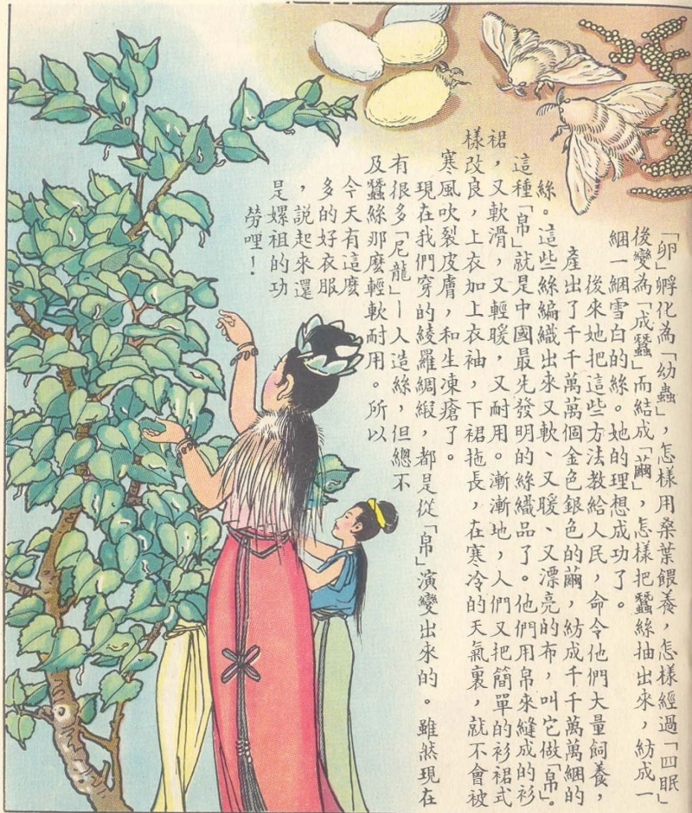 「卵」孵化為「幼蟲」,怎樣用桑葉餵養,怎樣經過「四眠」
後變為「成蠶」而結成「繭」,怎樣把蠶絲抽出來,紡成一
綑一綑雪白的絲。她的理想成功了。
後來她把這些方法教給人民,命令他們大量飼養,
產出了千千萬萬個金色銀色的繭,紡成千千萬萬綑的
絲。這些絲編織出來又軟、又暖、又漂亮的布,叫它做「帛」。
這種「帛」就是中國最先發明的絲織品了。他們用帛來縫成的衫
裙,又軟滑,又輕暖,又耐用。漸漸地,人們又把簡單的衫裙式
樣改良,上衣加上衣袖,下裙拖長,在寒冷的天氣裏,就不會被
寒風吹裂皮膚,和生凍瘡了。
現在我們穿的綾羅綢緞,都是從「帛」演變出來的。雖然現在
有很多「尼龍」—人造絲,但總不
及蠶絲那麼輕軟耐用。所以
今天有這麼
多的好衣服
,說起來還
是嫘祖的功
勞哩!